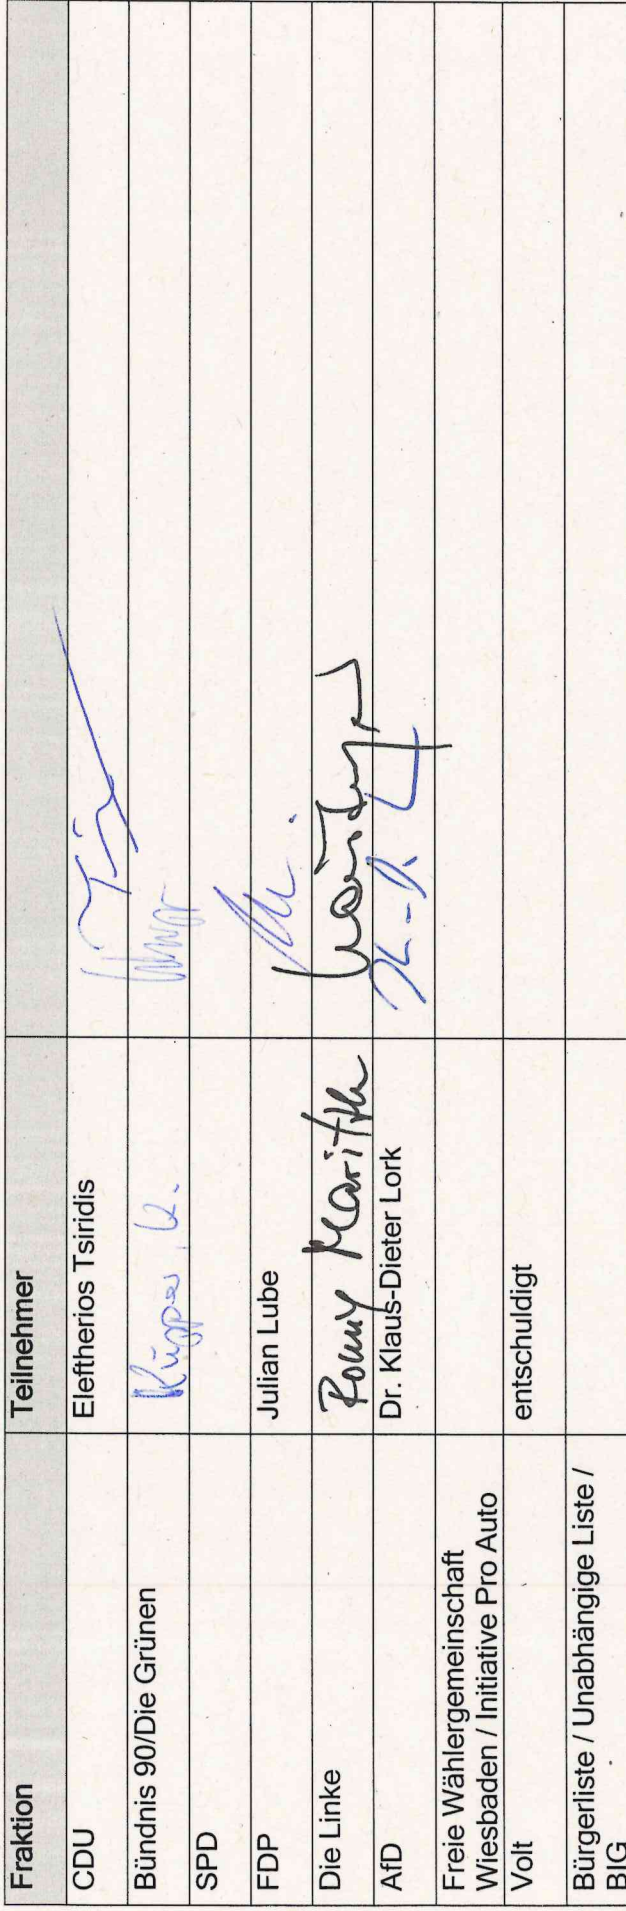 Fraktion Teilnehmer
CDU Eleftherios Tsiridis
Bündnis 90/Die Grünen Küpper, K.
SPD
FDP Julian Lube
Die Linke Romy
AfD Dr. Klaus-Dieter Lork
Freie Wählergemeinschaft
Wiesbaden / Initiative Pro Auto
Volt entschuldigt
Bürgerliste / Unabhängige Liste /
BIG